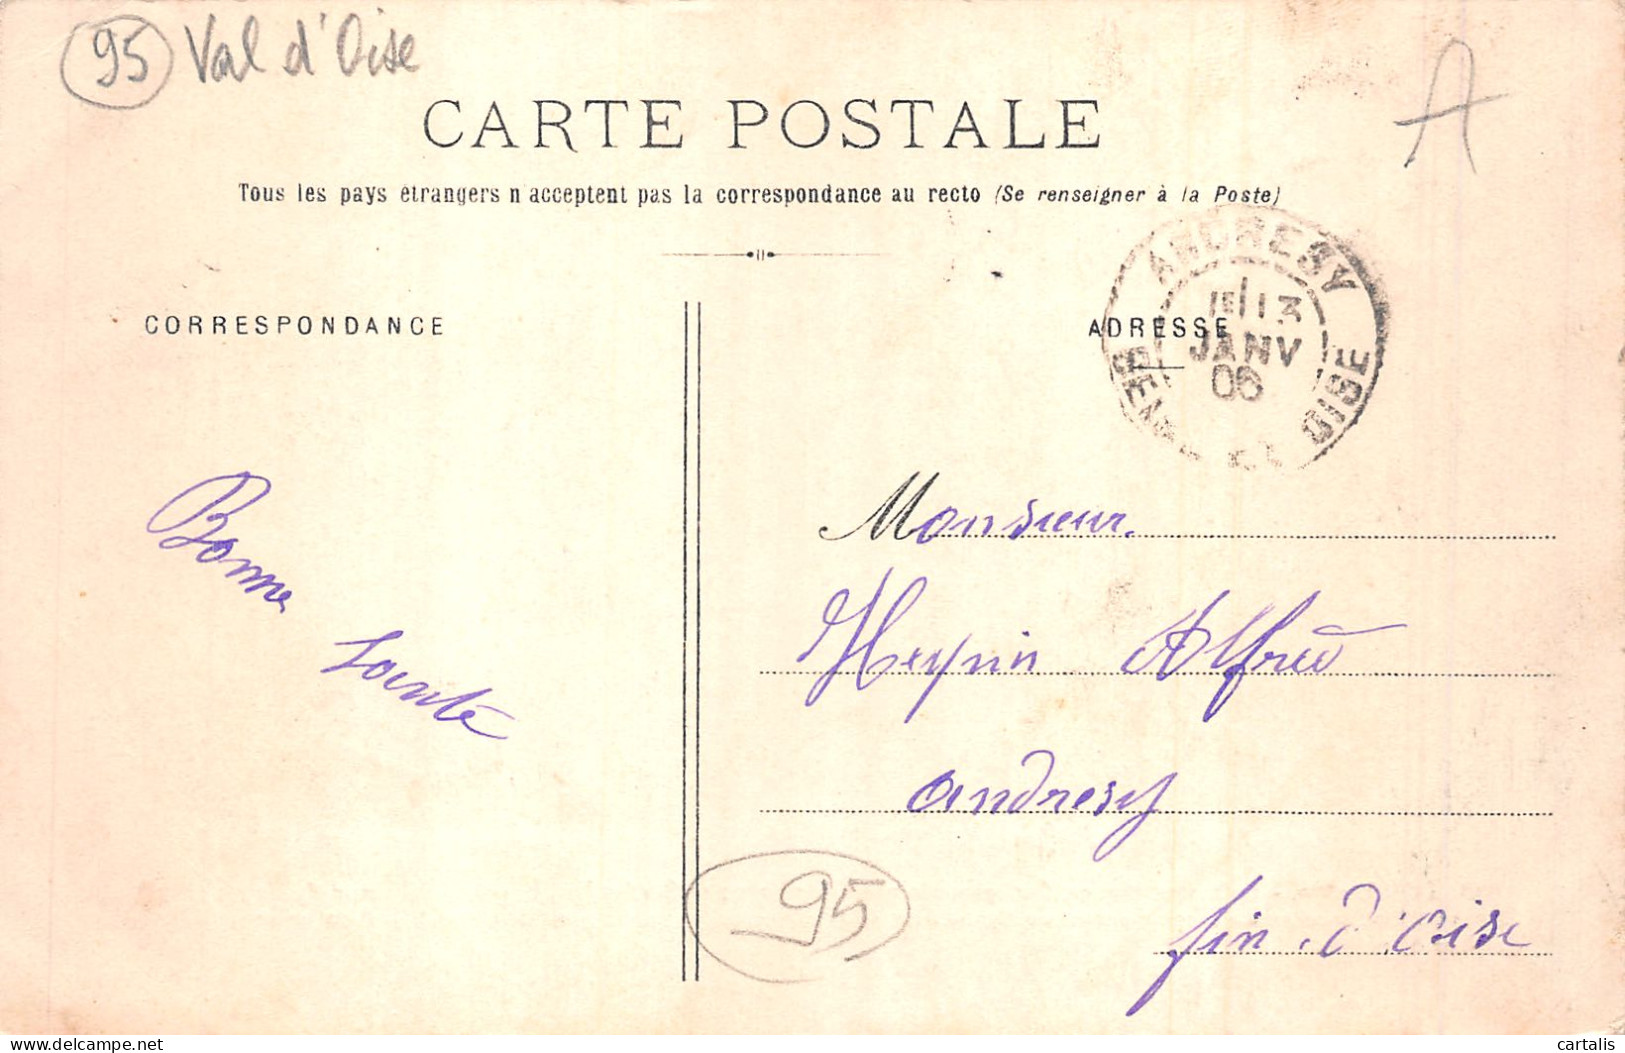 95 Val d'Oise
A
CARTE POSTALE
Tous les pays étrangers n'acceptent pas la correspondance au recto (Se renseigner à la Poste)
CORRESPONDANCE
ADRESSE
ANDRESY
1E/13
JANV
06
OISE
Bonne
Santé
Monsieur.
Alfred
andresy
fin d'oise
95
delcampe.net
cartalis